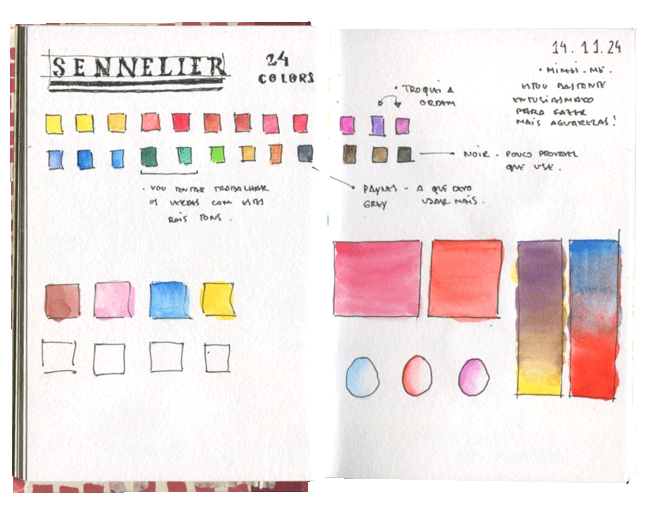 SENNELIER
24
COLORS
· VOU TENTAR TRABALHAR
OS VERDES COM ESTES
DOIS TONS.
14.11.24
· MIMEI-ME.
ESTOU BASTANTE
ENTUSIASMADO
PARA FAZER
MAIS AGUARELAS!
· TROQUEI A
ORDEM
NOIR - POUCO PROVÁVEL
QUE USE.
PAYNES - A QUE DEVO
GREY USAR MAIS.